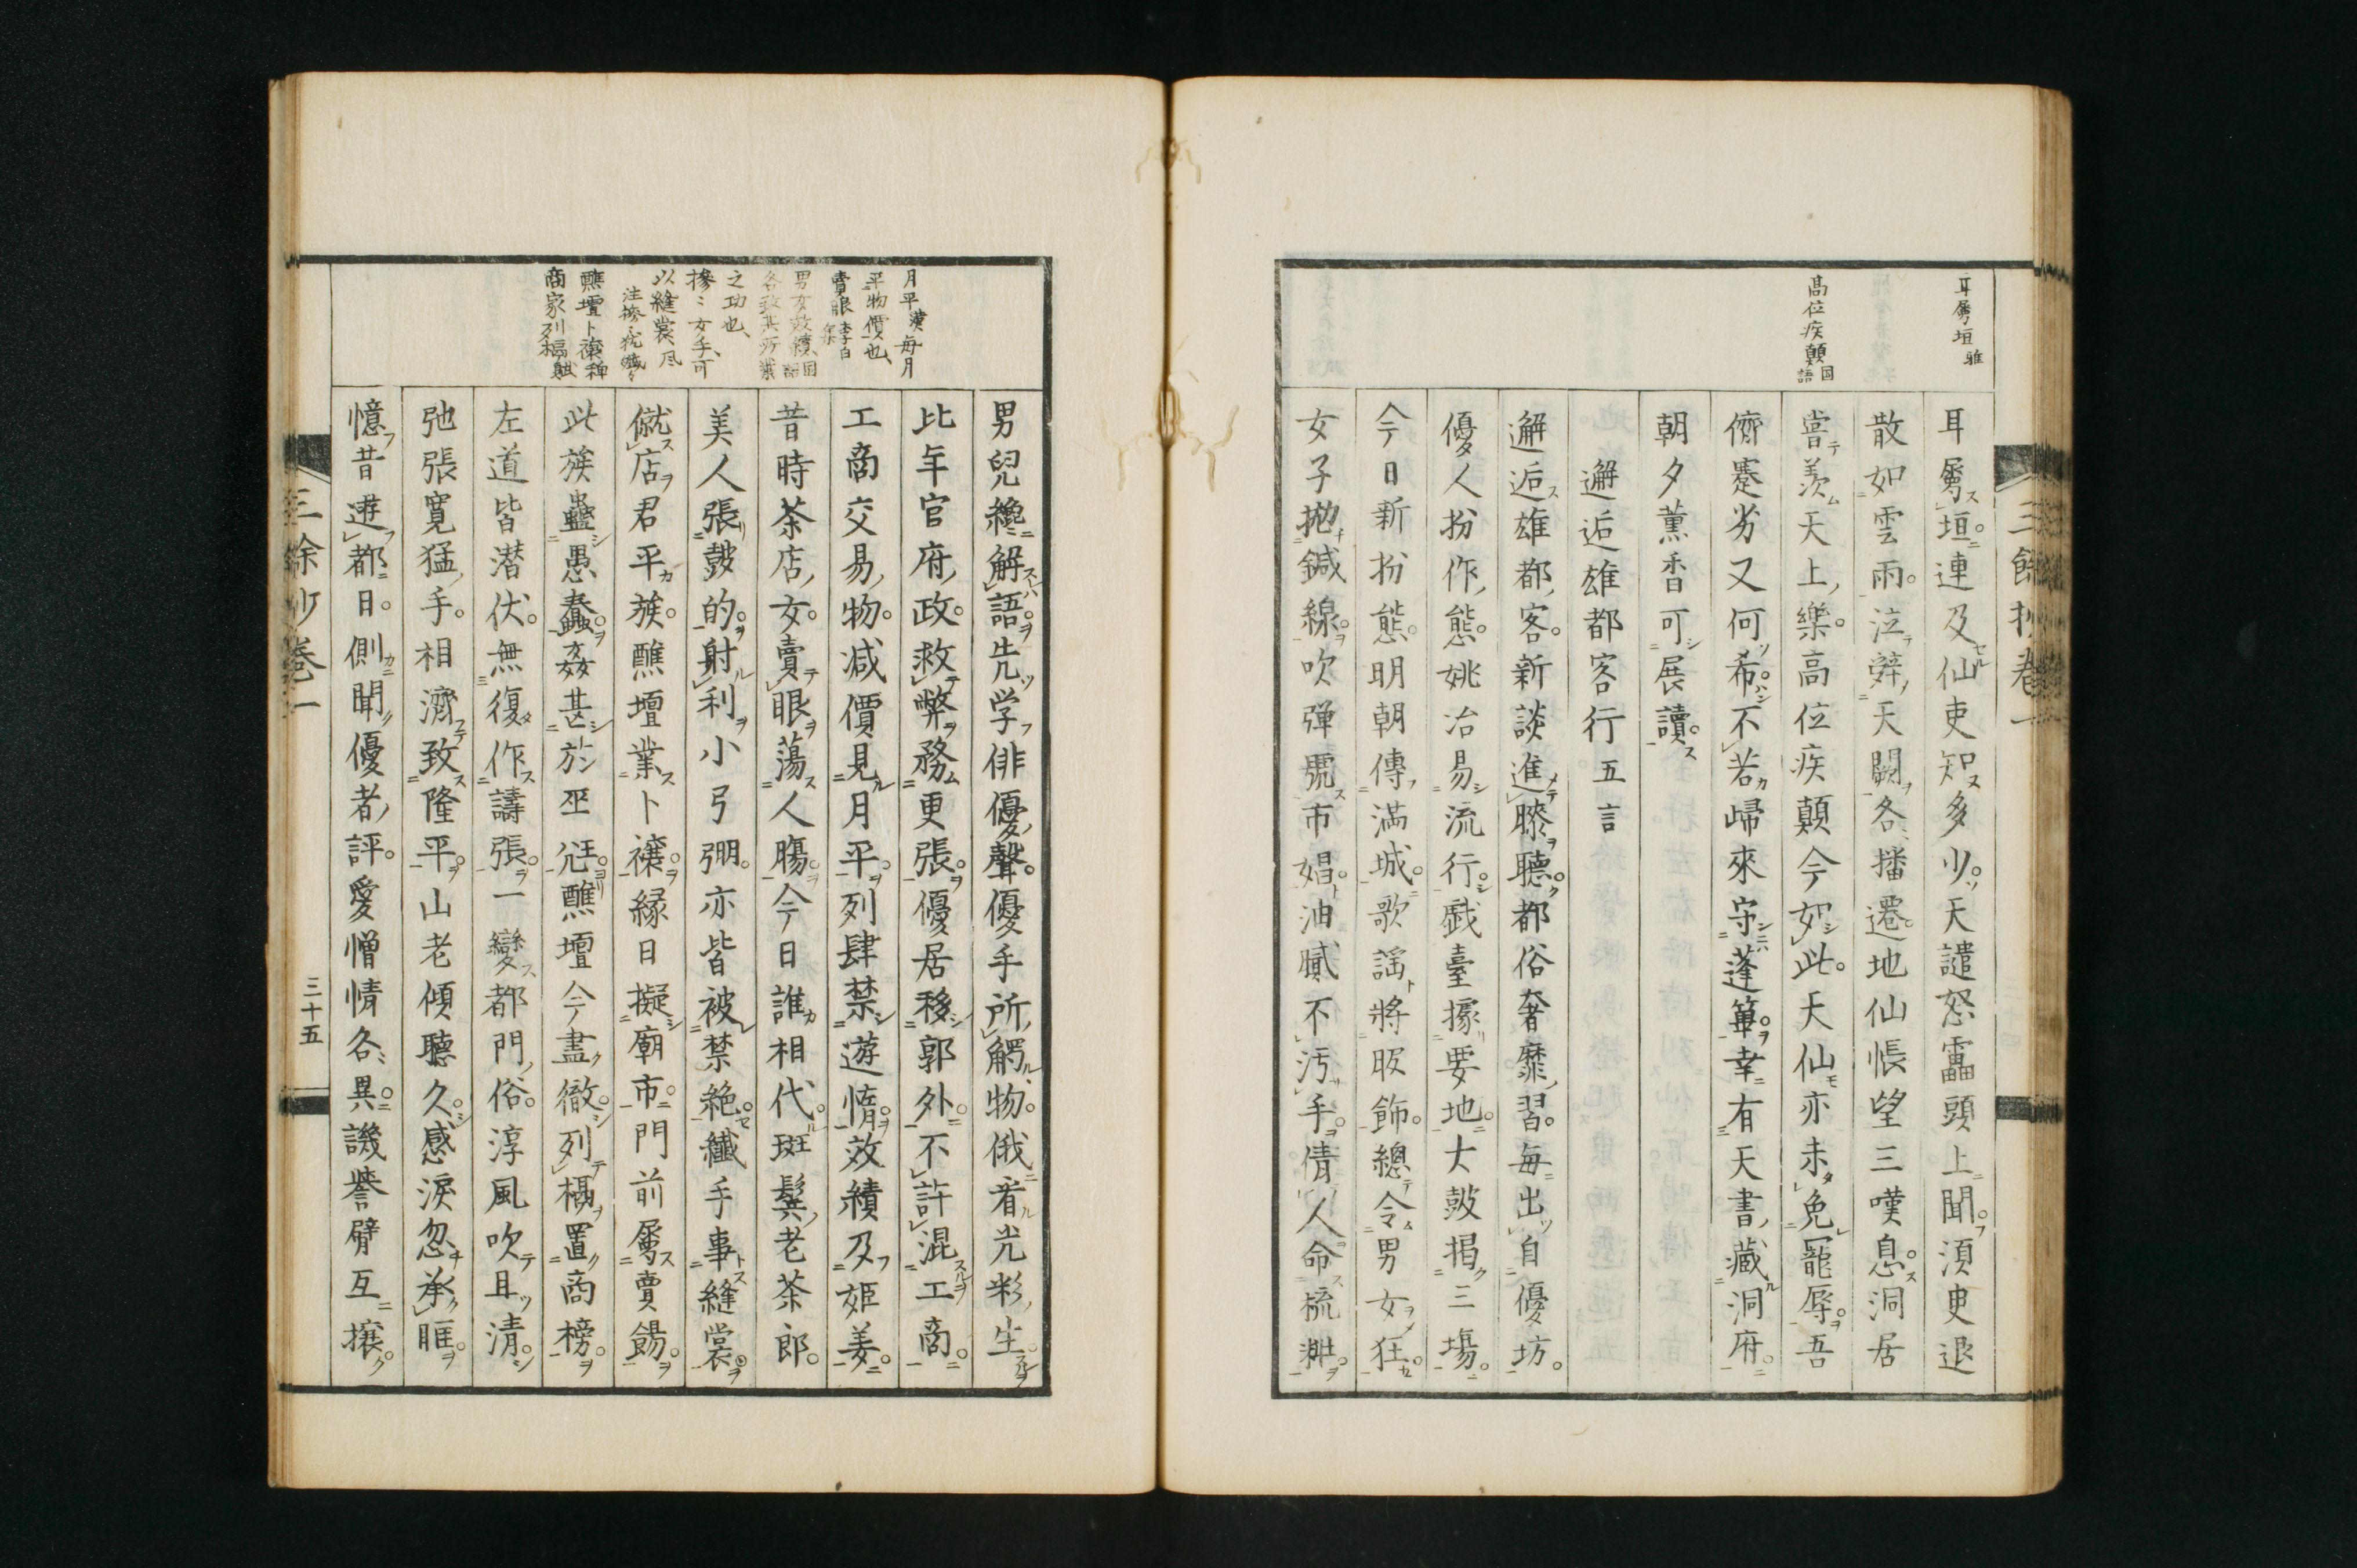 耳屬垣雅
高位疾顛国語
耳屬垣連及仙吏知多少天譴怒靁頭上聞須臾退
散如雲雨泣辭天闕各播遷地仙悵望三嘆息洞居
嘗羨天上樂高位疾顛今如此天仙亦未免寵辱吾
儕蹇劣又何希不若歸來守蓬蓽幸有天書藏洞府
朝夕薫香可展讀
邂逅雄都客行五言
邂逅雄都客新談進膝聽都俗奢靡習毎出自優坊
優人扮作態姚冶易流行戯臺據要地大鼓掲三場
今日新扮態明朝傳満城歌謡將服飾總令男女狂
女子抛鍼線吹弾覔市娼油膩不汚手倩人命梳
三餘抄巻一
月平漢毎月
平物價也
賣眼李白
男女效績国語
各致其所業
之功也
摻〻女手可
以縫裳風
注摻〻猶纖〻
醮壇卜禳種
商家列榻
男兒纔解語先学俳優聲優手所觸物俄看光彩生
比年官府政救弊務更張優居移郭外不許混工商
工商交易物減價見月平列肆禁遊惰效績及姫姜
昔時茶店女賣眼蕩人膓今日誰相代斑鬂老茶郎
美人張鼓的射利小弓弸亦皆被禁絶纎手事縫裳
僦店君平族醮壇業卜禳縁日擬廟市門前屬賣餳
此族蠱愚蠢姦甚於巫尫醮壇今盡徹列榻置商榜
左道皆潜伏無復作譸張一變都門俗淳風吹耳清
弛張寛猛手相濟致隆平山老傾聽久感淚忽承眶
憶昔遊都日側聞優者評愛憎情各異譏譽臂互攘
三餘抄巻一
三十五